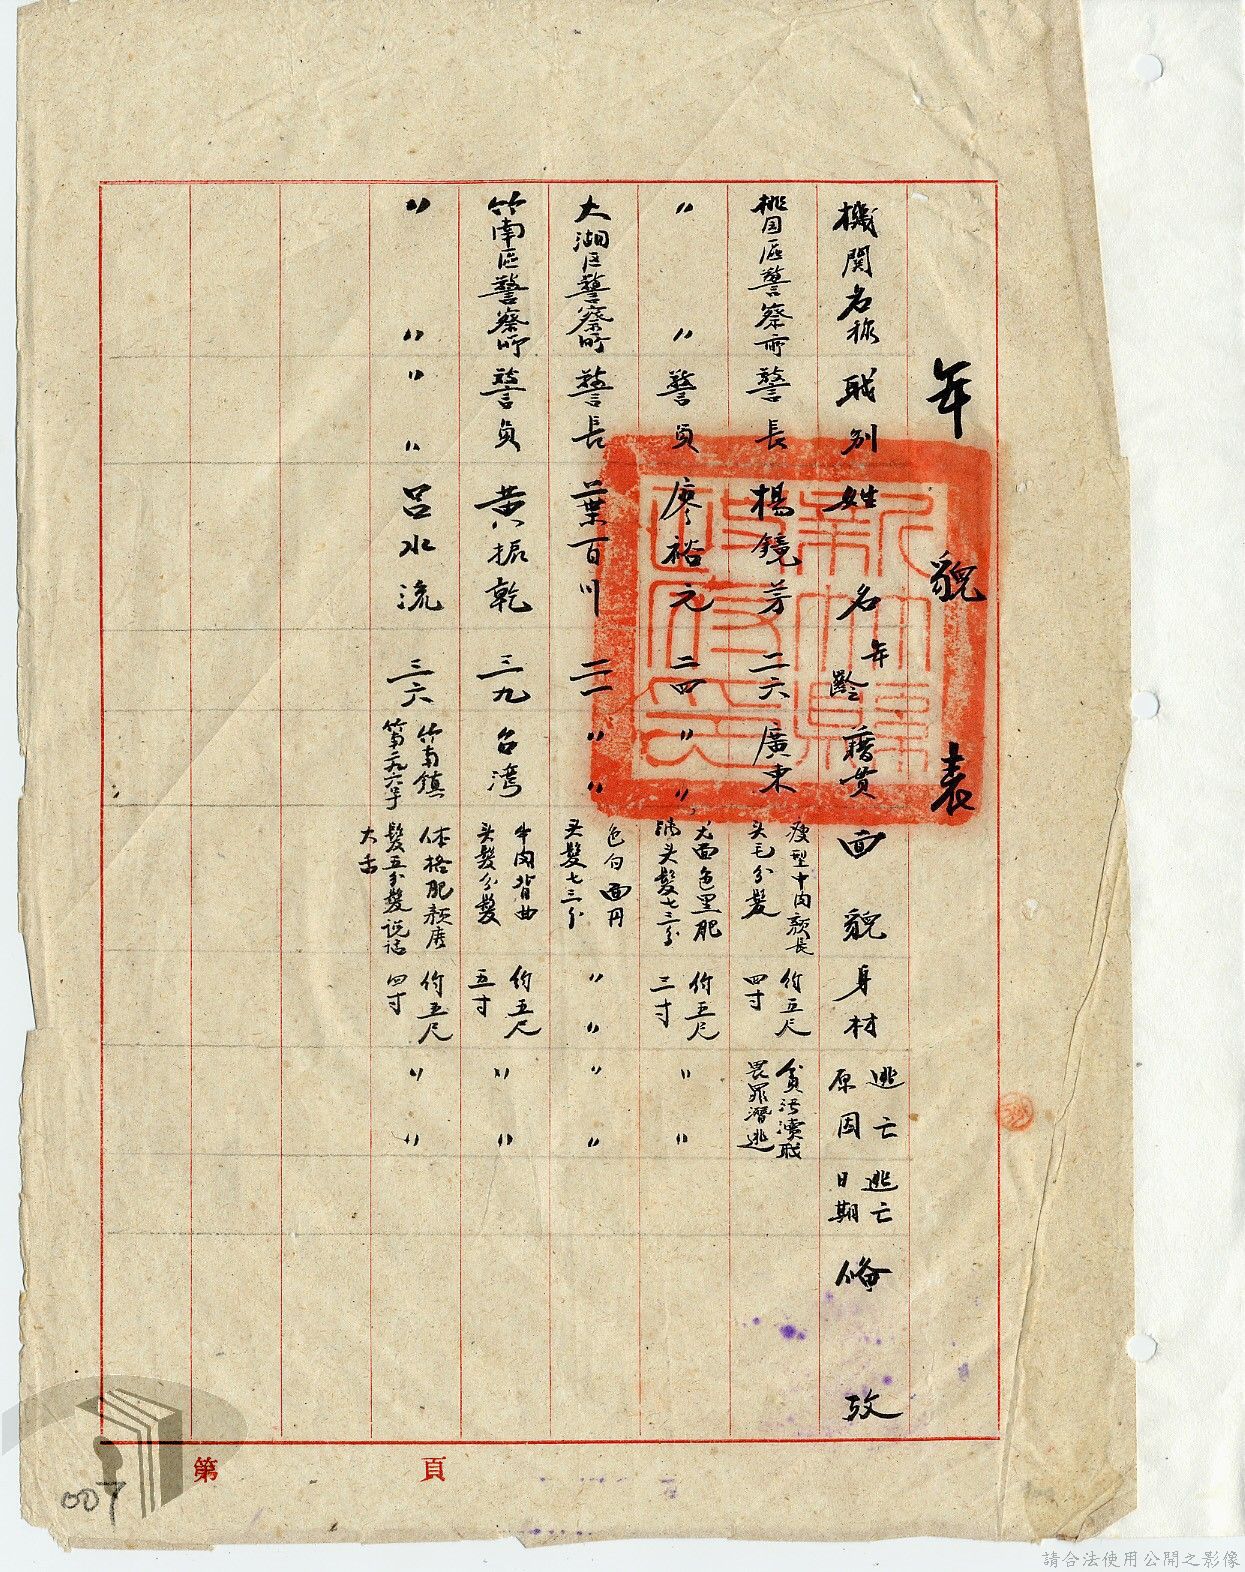 年貌表
機関名称 職別 姓名 年齡 籍貫 面貌 身材 逃亡原因 逃亡日期 俻攷
桃园區警察所 警長 楊鏡芳 二六 廣東 瘦型中肉顏長头毛分髮 約五尺四寸 貪污瀆職畏罪潛逃
〃 〃 警員 廖裕元 二四 〃 〃 面色黑肥满头髮七三分 約五尺三寸 〃 〃
大湖区警察所 警長 葉百川 二一 〃 〃 色白面円头髮七三分 〃 〃 〃 〃
竹南區警察所 警員 黄振乾 三九 台湾 中肉背曲头髮分髮 約五尺五寸 〃 〃
〃 〃 〃 〃 呂水流 三六 竹南鎮竹南二九六号 体格肥顏唐髮五分髮説話大舌 約五尺四寸 〃 〃
新竹縣政府印
第 頁
007
請合法使用公開之影像